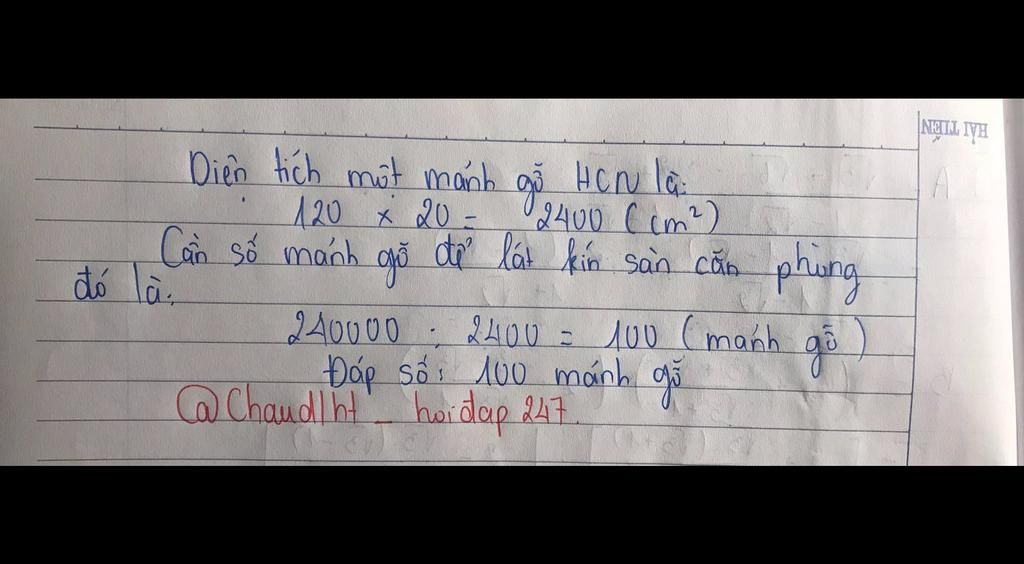 HẢI TIẾN
Diện tích một mảnh gỗ HCN là:
120 x 20 = 2400 (cm²)
Cần số mảnh gỗ để lát kín sàn căn phòng
đó là:
240000 : 2400 = 100 (mảnh gỗ)
Đáp số: 100 mảnh gỗ
@Chaudlht _ hoidap 247.